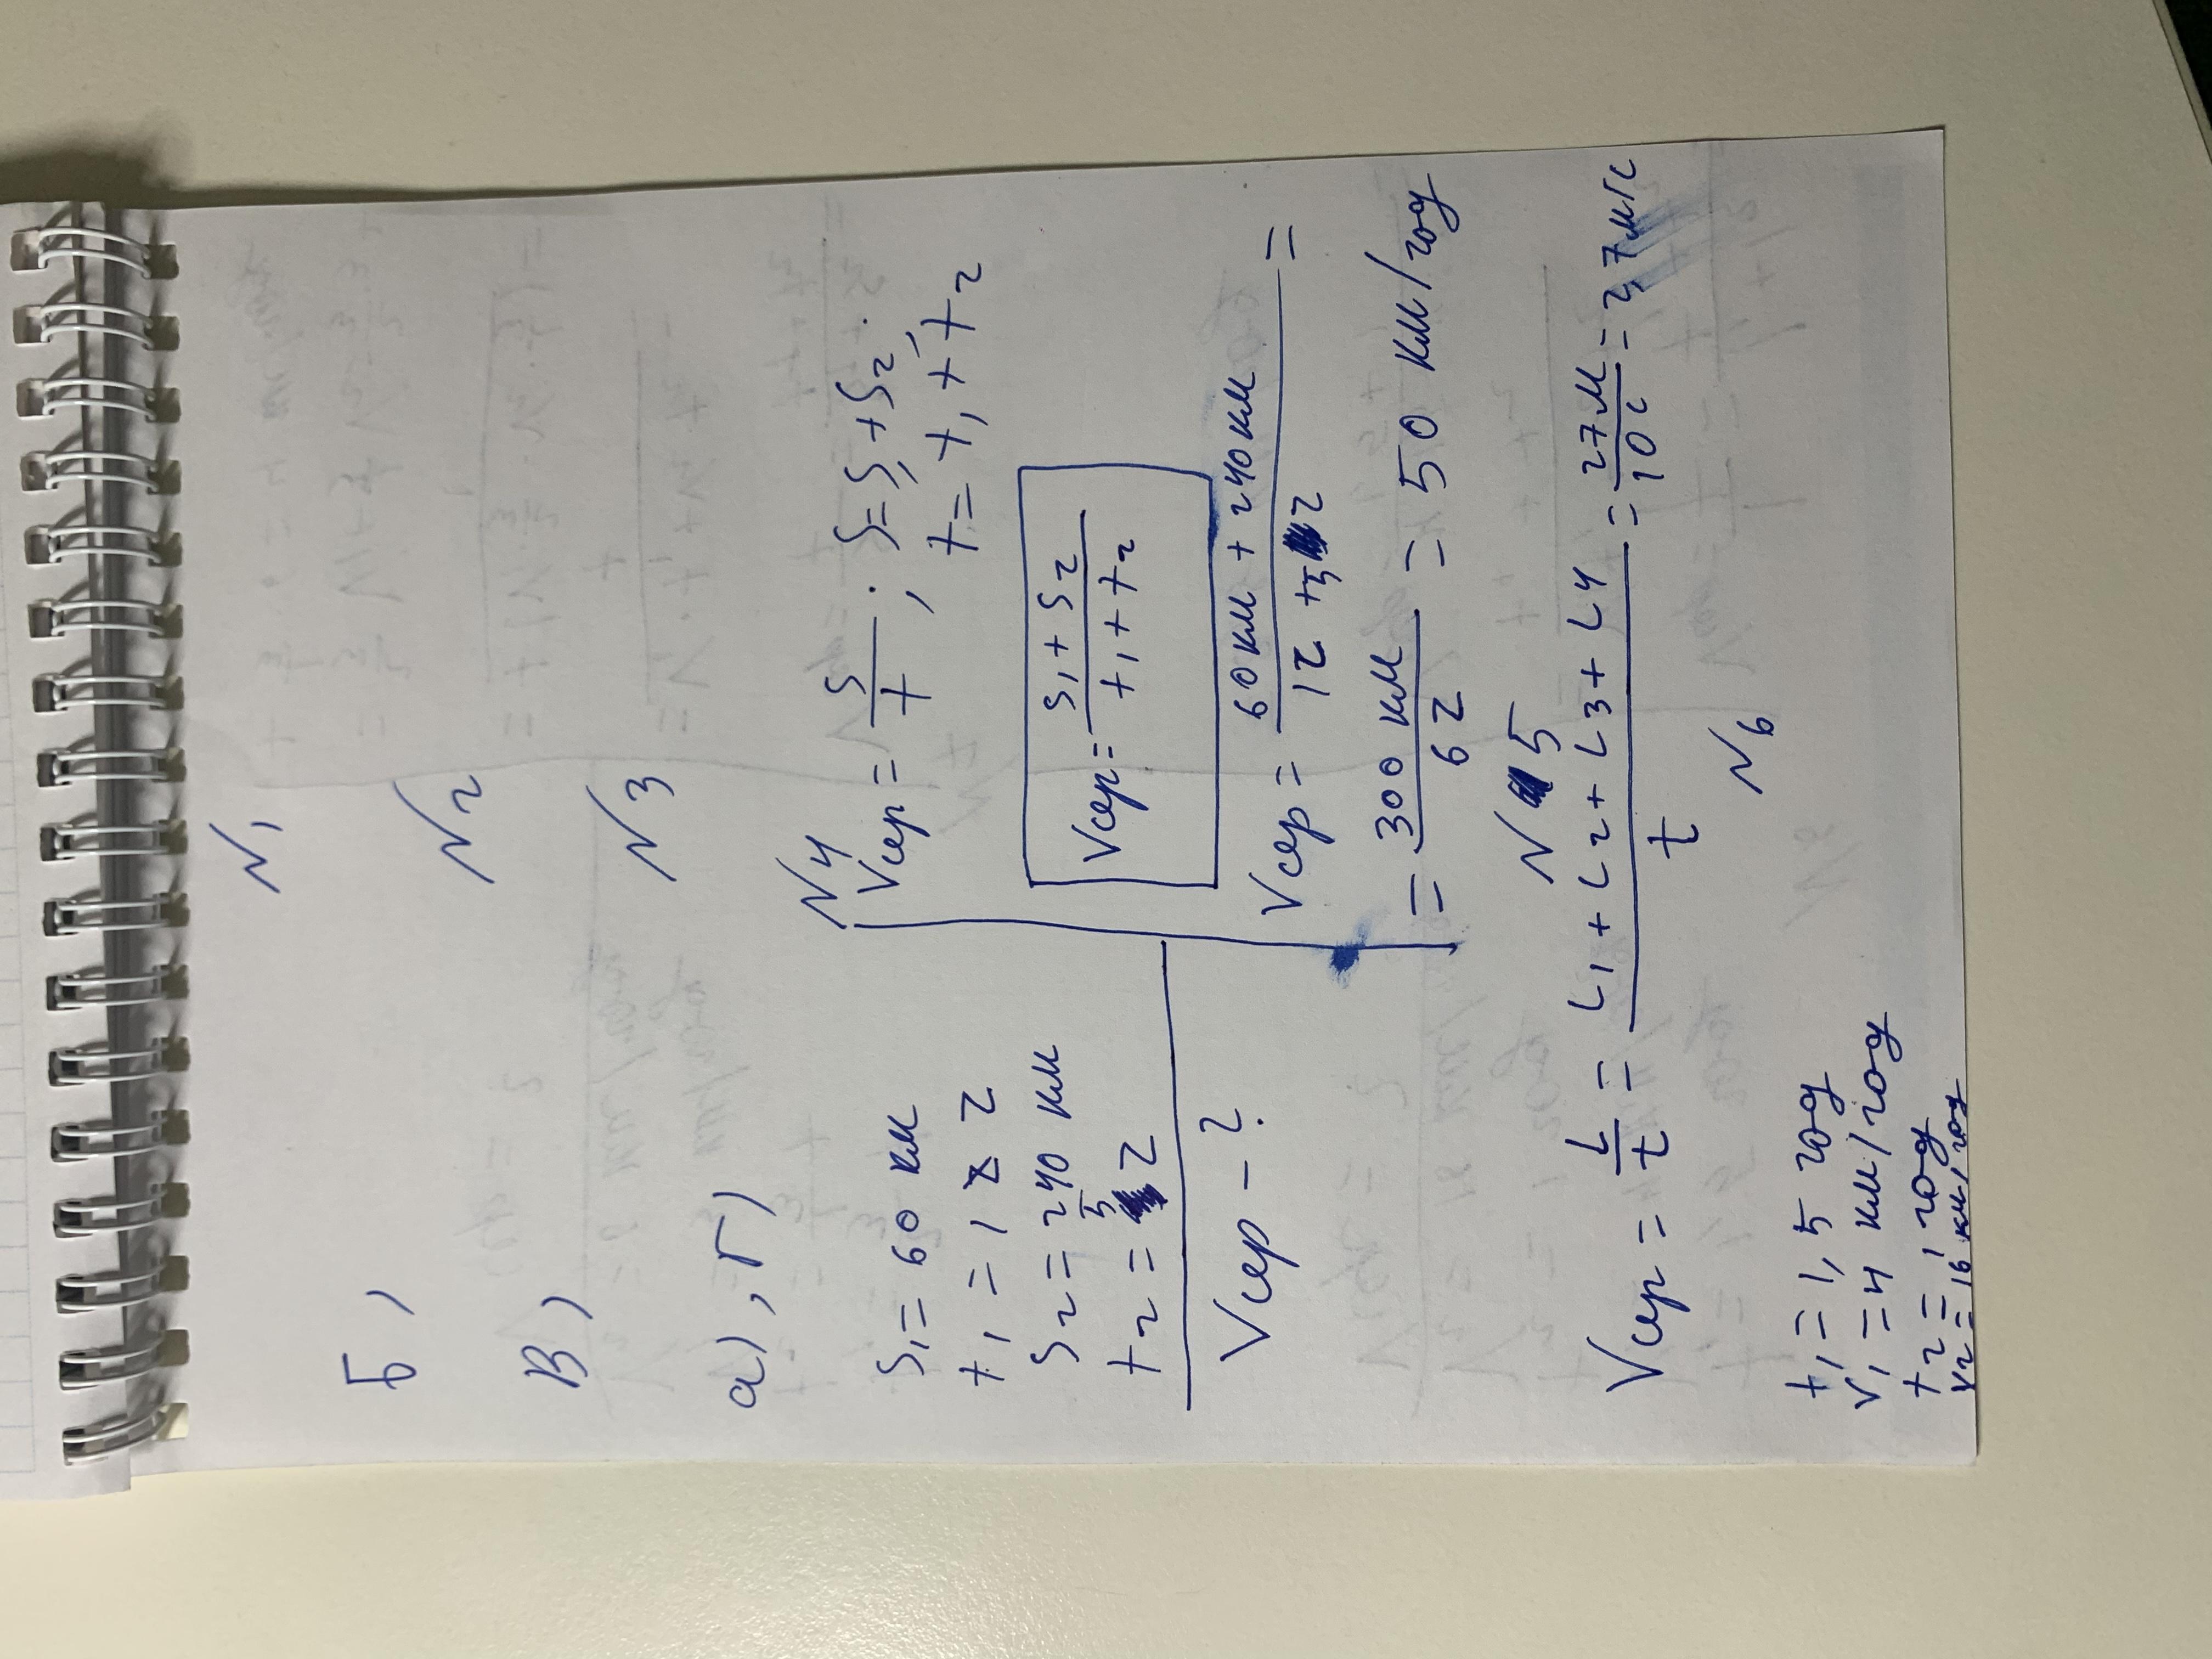 N1
Б)
N2
В)
N3
а), Г)
N4
S₁ = 60 км
t₁ = 1 г
S₂ = 240 км
t₂ = 5 г
Vсер - ?
Vсер = S/t ; S = S₁ + S₂
t = t₁ + t₂
Vсер = (S₁ + S₂)/(t₁ + t₂)
Vсер = (60 км + 240 км)/(1г + 5г) =
= 300 км/6г = 50 км/год
N 5
Vсер = L/t = (L₁ + L₂ + L₃ + L₄)/t = 27м/10с = 2,7 м/с
N6
t₁ = 1,5 год
V₁ = 4 км/год
t₂ = 1 год
V₂ = 16 км/год